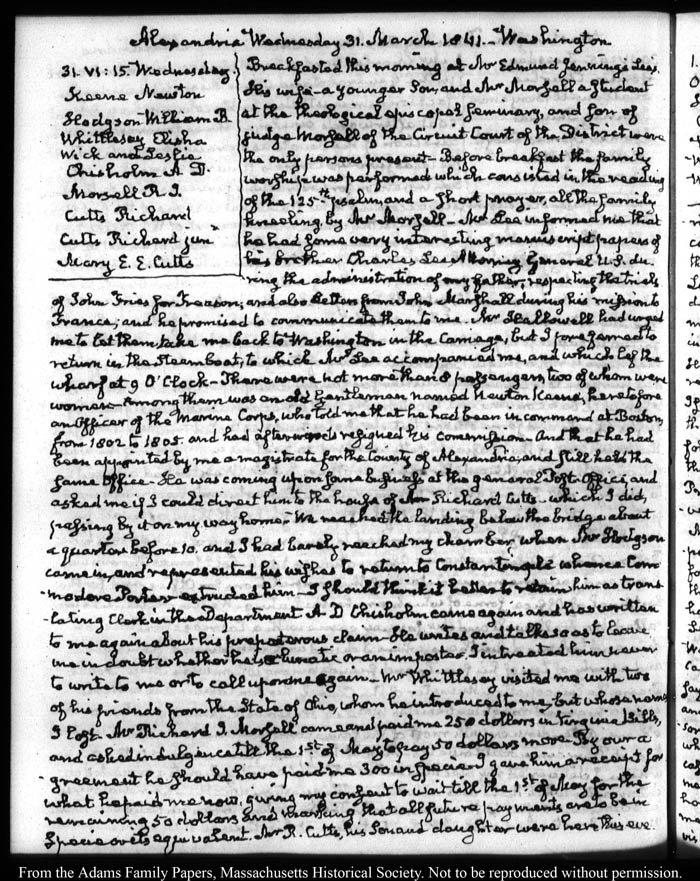 Alexandria Wednesday 31. March 1841.— Washington
31. VI:15. Wednesday.
Keene Newton
Hodgson William B
Whittlesey Elisha
Wick and Leslie
Chisholm A. D.
Morsell R. J.
Cutts Richard
Cutts Richard junr
Mary E. E. Cutts
Breakfasted this morning at Mr Edmund Jennings Lee.
His wife— a younger Son, and Mr Morsell a Student
at the Theological episcopal Seminary, and Son of
judge Morsell of the Circuit Court of the District were
the only persons present— Before breakfast the family
worship was performed which consisted in the reading
of the 125th psalm, and a short prayer, all the family
kneeling, by Mr Morsell— Mr Lee informed me that
he had some very interesting manuscript papers of
his brother Charles Lee Attorney General U.S. du-
ring the administration of my father, respecting the trials
of John Fries for Treason; and also letters from John Marshall during his mission to
France; and he promised to communicate them to me. Mr Hallowell had urged
me to let them take me back to Washington in the Carriage, but I preferred to
return in the Steam boat; to which Mr Lee accompanied me, and which left the
wharf at 9 O'Clock— There were not more than 8 passengers, two of whom were
women— Among them was an old Gentleman named Newton Keene, heretofore
an Officer of the Marine Corps, who told me that he had been in command at Boston,
from 1802 to 1805 and had afterwards resigned his commission— And that he had
been appointed by me a magistrate for the County of Alexandria, and still held the
same Office— He was coming up on some business at the general Post-Office; and
asked me if I could direct him to the house of Mr Richard Cutts— which I did,
passing by it on my way home.— We reached the landing below the bridge about
a quarter before 10. and I had barely reached my chamber when Mr Hodgson
came in, and represented his wishes to return to Constantinople whence Com-
modore Porter extruded him— I should think it better to retain him as trans-
lating Clerk in the Department. A. D Chisholm came again and has written
to me again about his preposterous claim— He writes and talks so as to leave
me in doubt whether he is a lunatic or an impostor. I intreated him never
to write to me or to call upon me again— Mr Whittlesey visited me with two
of his friends from the State of Ohio, whom he introduced to me, but whose names
I lost. Mr Richard J. Morsell came and paid me 250 dollars in Virginia bills,
and asked indulgence till the 1st of May to pay 50 dollars more. By our a-
greement he should have paid me 300 in specie. I gave him a receipt for
what he paid me now, giving my consent to wait till the 1st of May for the
remaining 50 dollars and marking that all future payments are to be in
specie or its equivalent. Mr R. Cutts, his Son and daughter were here this eve
From the Adams Family Papers, Massachusetts Historical Society. Not to be reproduced without permission.